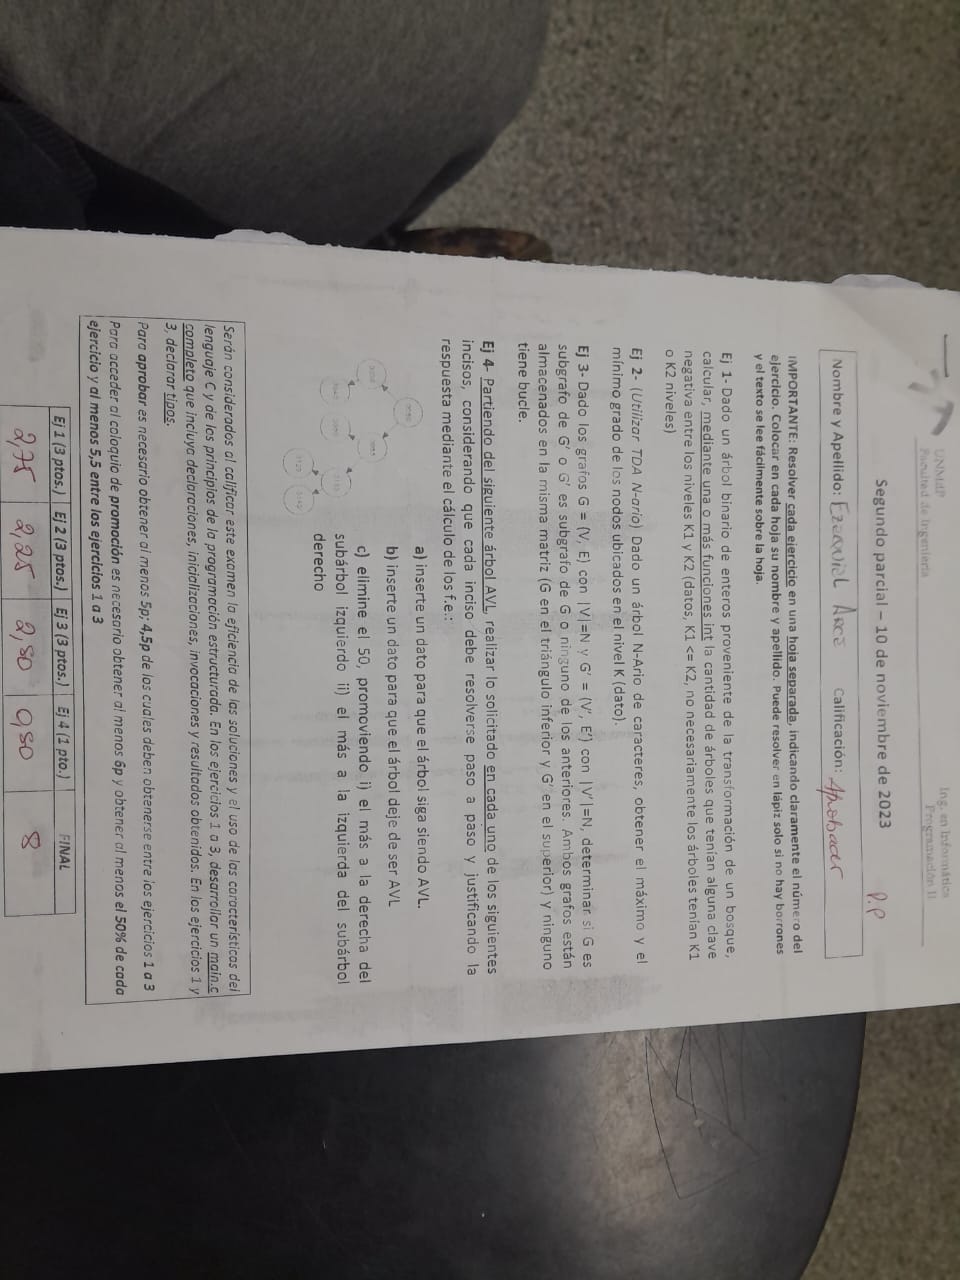 UNMdP
Facultad de Ingeniería
Ing. en Informática
Programación II
Segundo parcial – 10 de noviembre de 2023
P.P
Nombre y Apellido: EZEQUIEL ARCE Calificación: Aprobado
IMPORTANTE: Resolver cada ejercicio en una hoja separada, indicando claramente el número del
ejercicio. Colocar en cada hoja su nombre y apellido. Puede resolver en lápiz solo si no hay borrones
y el texto se lee fácilmente sobre la hoja.
Ej 1- Dado un árbol binario de enteros proveniente de la transformación de un bosque,
calcular, mediante una o más funciones int la cantidad de árboles que tenían alguna clave
negativa entre los niveles K1 y K2 (datos, K1 <= K2, no necesariamente los árboles tenían K1
o K2 niveles)
Ej 2- (Utilizar TDA N-ario) Dado un árbol N-Ario de caracteres, obtener el máximo y el
mínimo grado de los nodos ubicados en el nivel K (dato).
Ej 3- Dado los grafos G = (V, E) con |V|=N y G' = (V', E') con |V'|=N, determinar si G es
subgrafo de G' o G' es subgrafo de G o ninguno de los anteriores. Ambos grafos están
almacenados en la misma matriz (G en el triángulo inferior y G' en el superior) y ninguno
tiene bucle.
Ej 4- Partiendo del siguiente árbol AVL, realizar lo solicitado en cada uno de los siguientes
incisos, considerando que cada inciso debe resolverse paso a paso y justificando la
respuesta mediante el cálculo de los f.e.:
a) inserte un dato para que el árbol siga siendo AVL.
b) inserte un dato para que el árbol deje de ser AVL
c) elimine el 50, promoviendo i) el más a la derecha del
subárbol izquierdo ii) el más a la izquierda del subárbol
derecho
Serán considerados al calificar este examen la eficiencia de las soluciones y el uso de las características del
lenguaje C y de los principios de la programación estructurada. En los ejercicios 1 a 3, desarrollar un main.c
completo que incluya declaraciones, inicializaciones, invocaciones y resultados obtenidos. En los ejercicios 1 y
3, declarar tipos.
Para aprobar es necesario obtener al menos 5p; 4,5p de los cuales deben obtenerse entre los ejercicios 1 a 3
Para acceder al coloquio de promoción es necesario obtener al menos 6p y obtener al menos el 50% de cada
ejercicio y al menos 5,5 entre los ejercicios 1 a 3
Ej 1 (3 ptos.) Ej 2 (3 ptos.) Ej 3 (3 ptos.) Ej 4 (1 pto.) FINAL
2,75 2,25 2,50 0,50 8